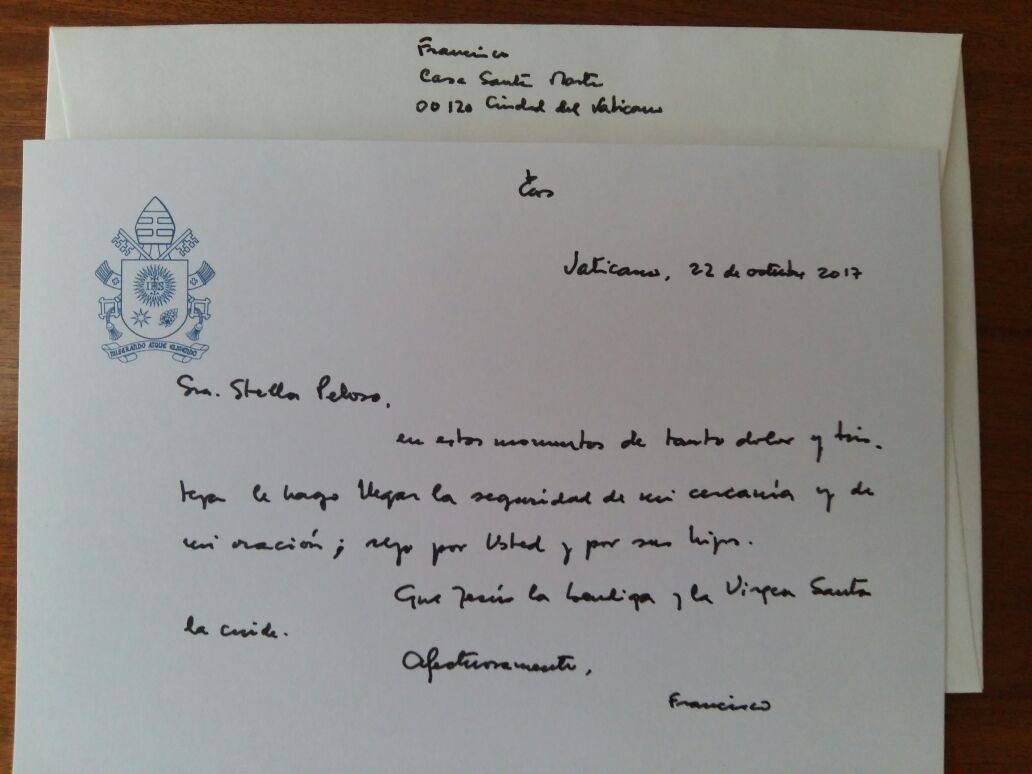 Francisco
Casa Santa Marta
00120 Ciudad del Vaticano
IHS
MISERANDO ATQUE ELIGENDO
Vaticano, 22 de octubre 2017
Sra. Stella Peloso,
en estos momentos de tanto dolor y tris-
teza le hago llegar la seguridad de mi cercanía y de
mi oración; rezo por Usted y por sus hijos.
Que Jesús la bendiga y la Virgen Santa
la cuide.
Afectuosamente,
Francisco